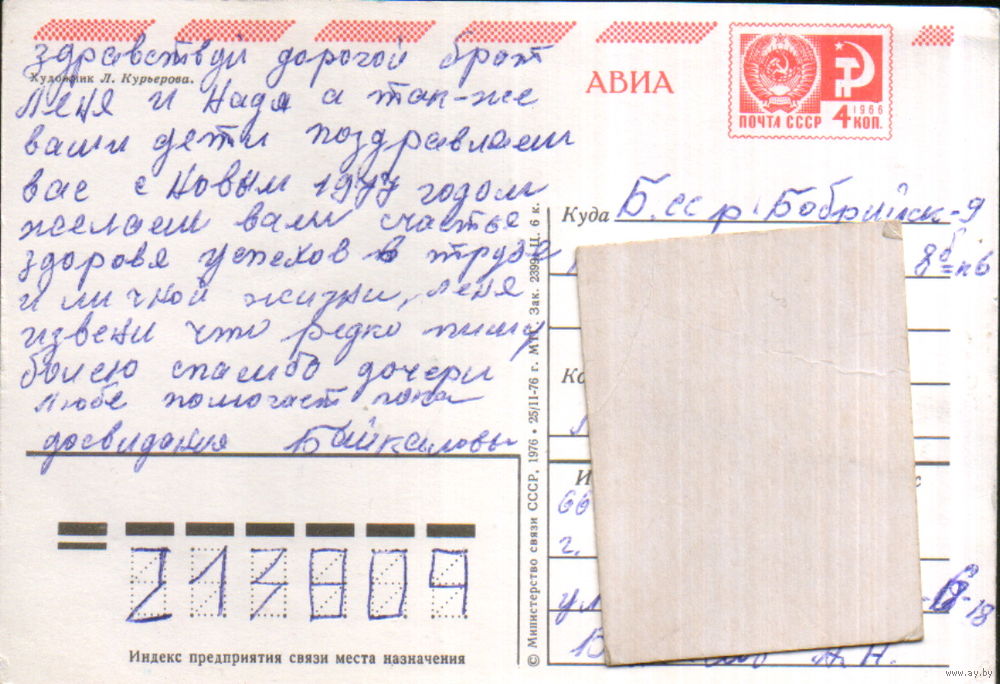 здравствуй дорогой брат
Художник Л. Курьерова.
Леня и Надя а так-же
ваши дети поздравляем
вас с новым 1977 годом
желаем вам счастье
здоровя успехов в труде
и личной жизни, Леня
извени что редко пишу
болею спасибо дочери
Любе помогает пока
досвидания Байкаловы
АВИА
ПОЧТА СССР 4 КОП.
1966
Куда Б.ССР Бобруйск-9
8б кв 6
Ко
66
г.
ул
6-18
А. Н.
© Министерство связи СССР, 1976 • 25/II-76 г. Зак. 2399. Ц. 6 к.
213809
Индекс предприятия связи места назначения
www.ay.by